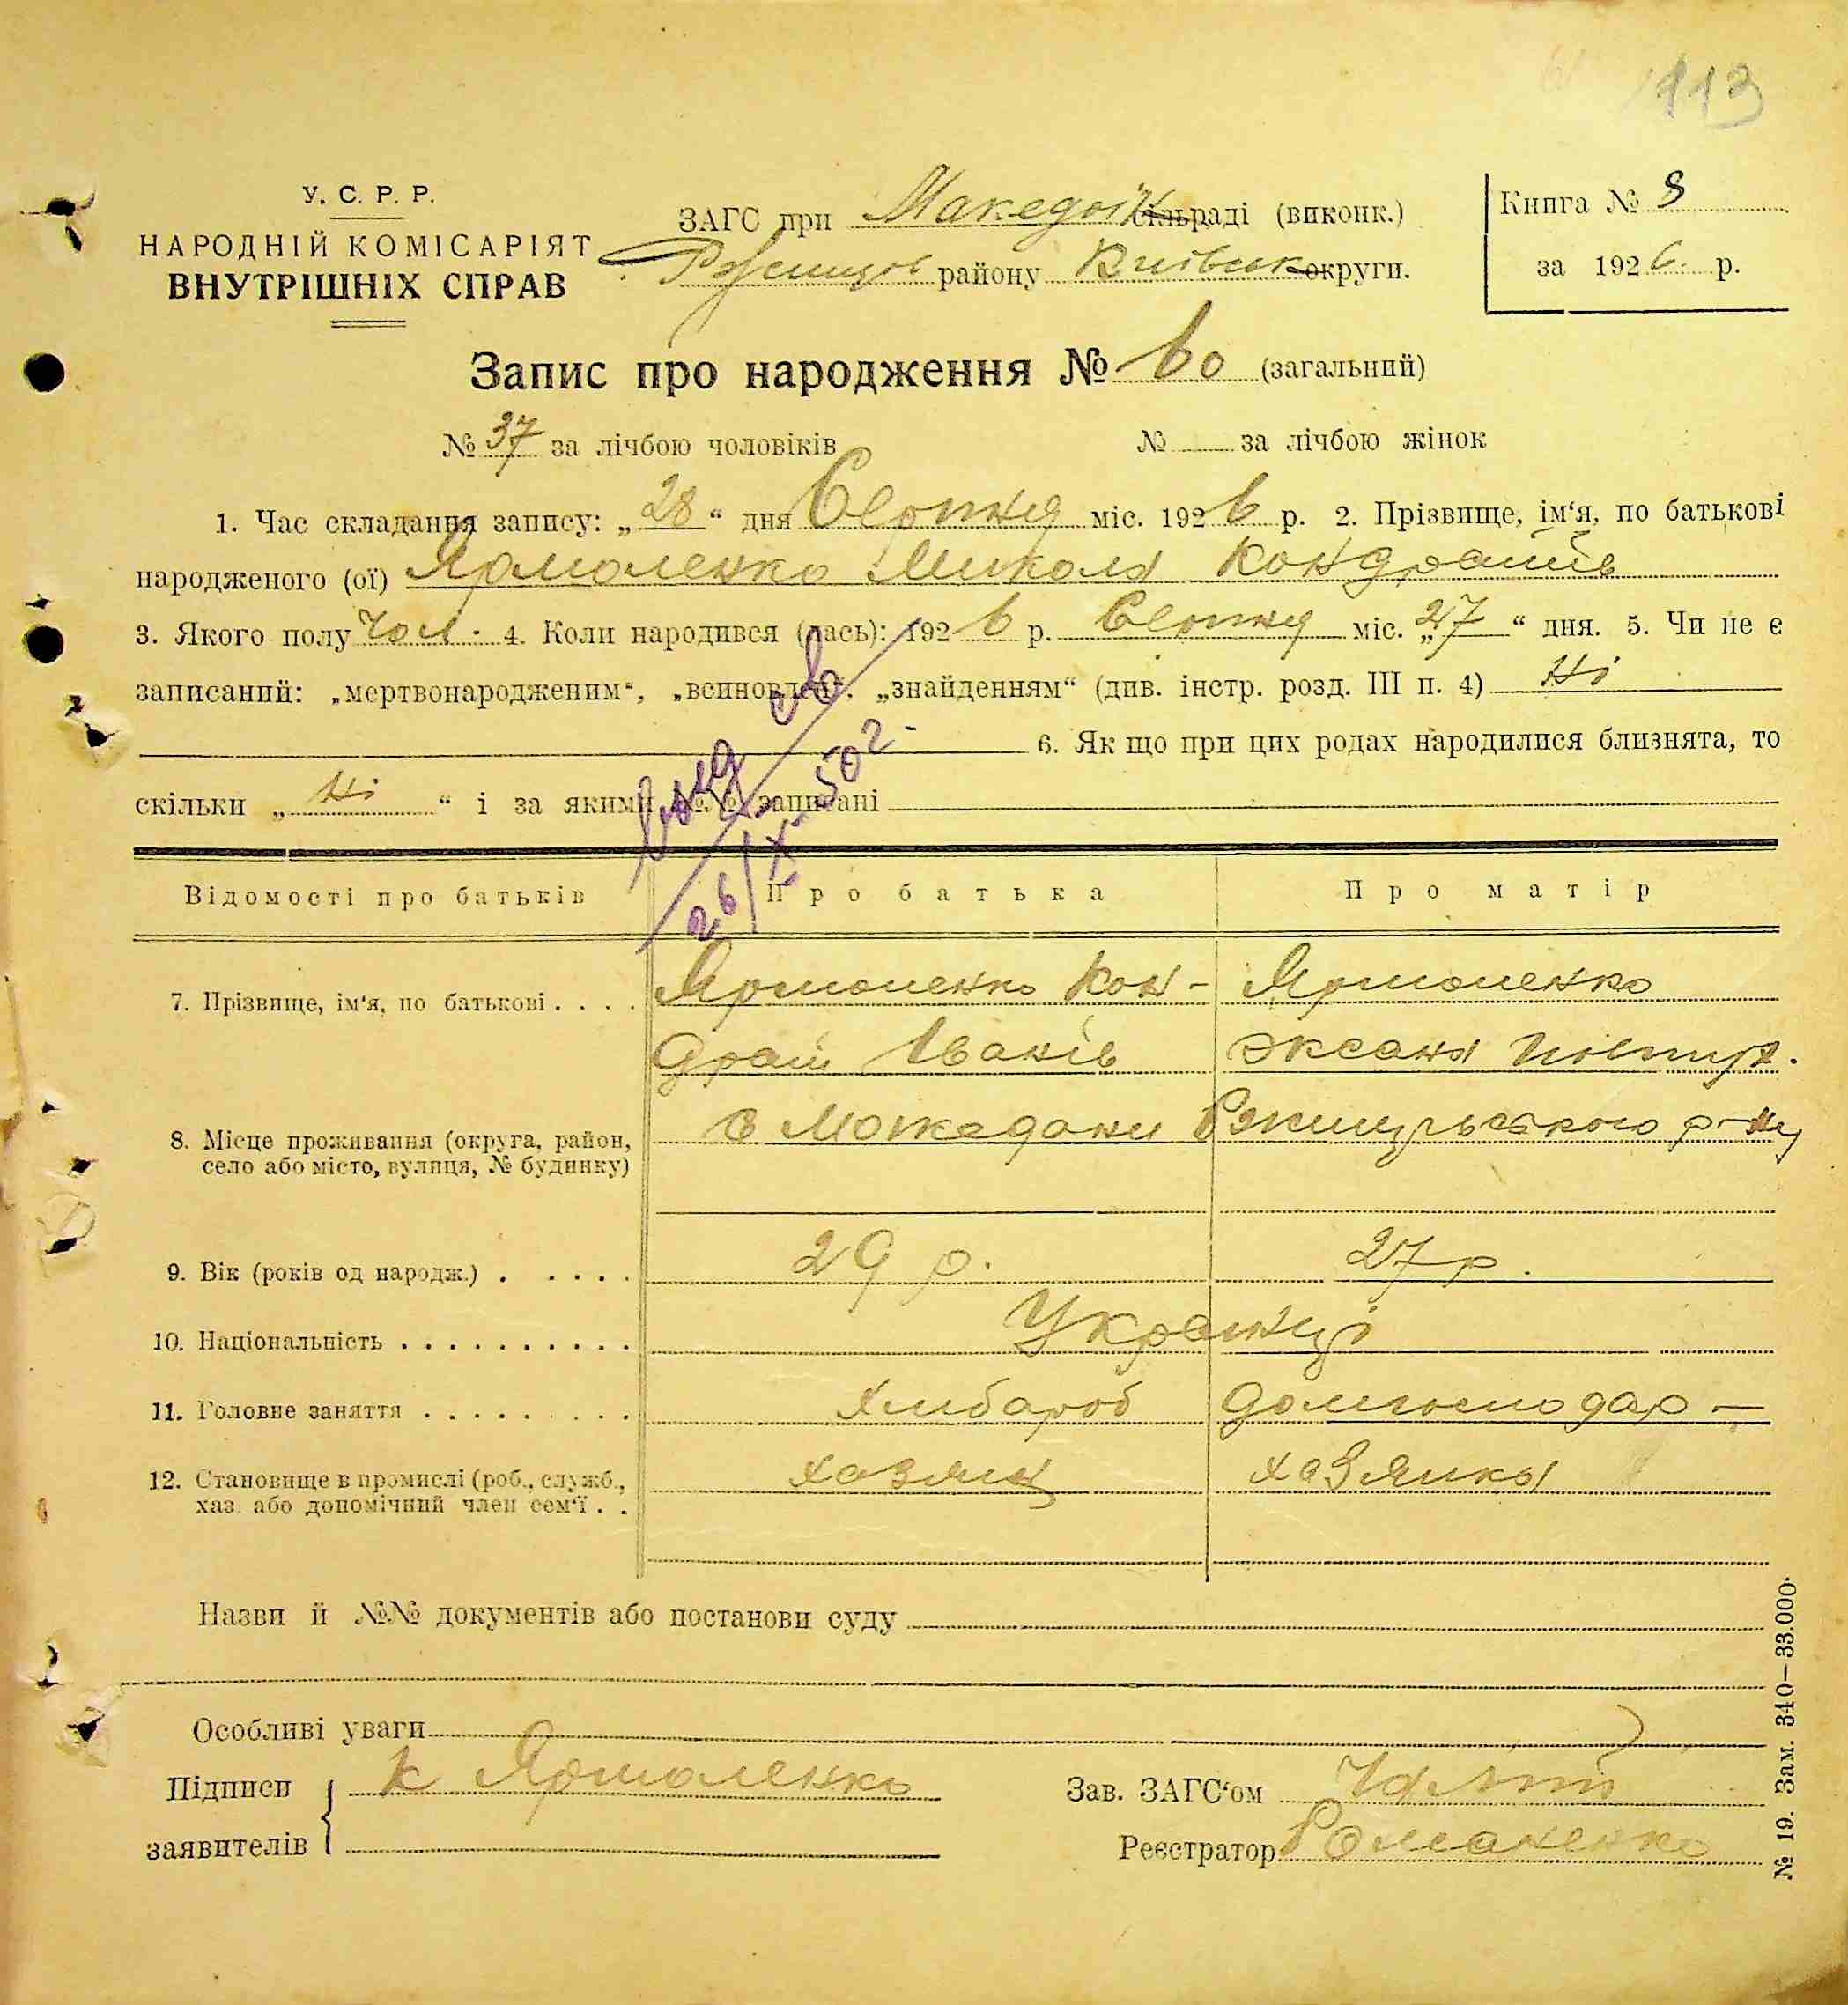 113
У. С. Р. Р.
НАРОДНІЙ КОМІСАРІЯТ
ВНУТРІШНІХ СПРАВ
ЗАГС при Македон сільраді (виконк.)
Ржищев району Київськ округи.
Книга № 8
за 1926. р.
Запис про народження № 60 (загальний)
№ 37 за лічбою чоловіків № за лічбою жінок
1. Час складання запису: „28“ дня Серпня міс. 1926 р. 2. Прізвище, ім'я, по батькові
народженого (ої) Ярмоленко Микола Кондратів
3. Якого полу чол. 4. Коли народився (лась): 1926 р. Серпня міс. „27“ дня. 5. Чи не є
записаний: „мертвонародженим“, „всиновлен“, „знайденням“ (див. інстр. розд. III п. 4) Ні
6. Як що при цих родах народилися близнята, то
скільки „Ні“ і за якими №№ записані
26/X-50 г-
Відомості про батьків Про батька Про матір
7. Прізвище, ім'я, по батькові . . . . Ярмоленко Кон- Ярмоленко
драт Іванів Оксана
8. Місце проживання (округа, район,
село або місто, вулиця, № будинку)
с Македони Ржищівського р-ну
9. Вік (років од народж.) . . . . . 29 р. 27 р.
10. Національність . . . . . . . . . . Українці
11. Головне заняття . . . . . . . . . Хлібароб домгосподар –
12. Становище в промислі (роб., служб.,
хаз. або допомічний член сем'ї . .
хазяїн хазяйка
Назви й №№ документів або постанови суду
Особливі уваги
Підписи заявителів К Ярмоленко
Зав. ЗАГС'ом
Реєстратор Романенко
№ 19. Зам. 340—33.000.